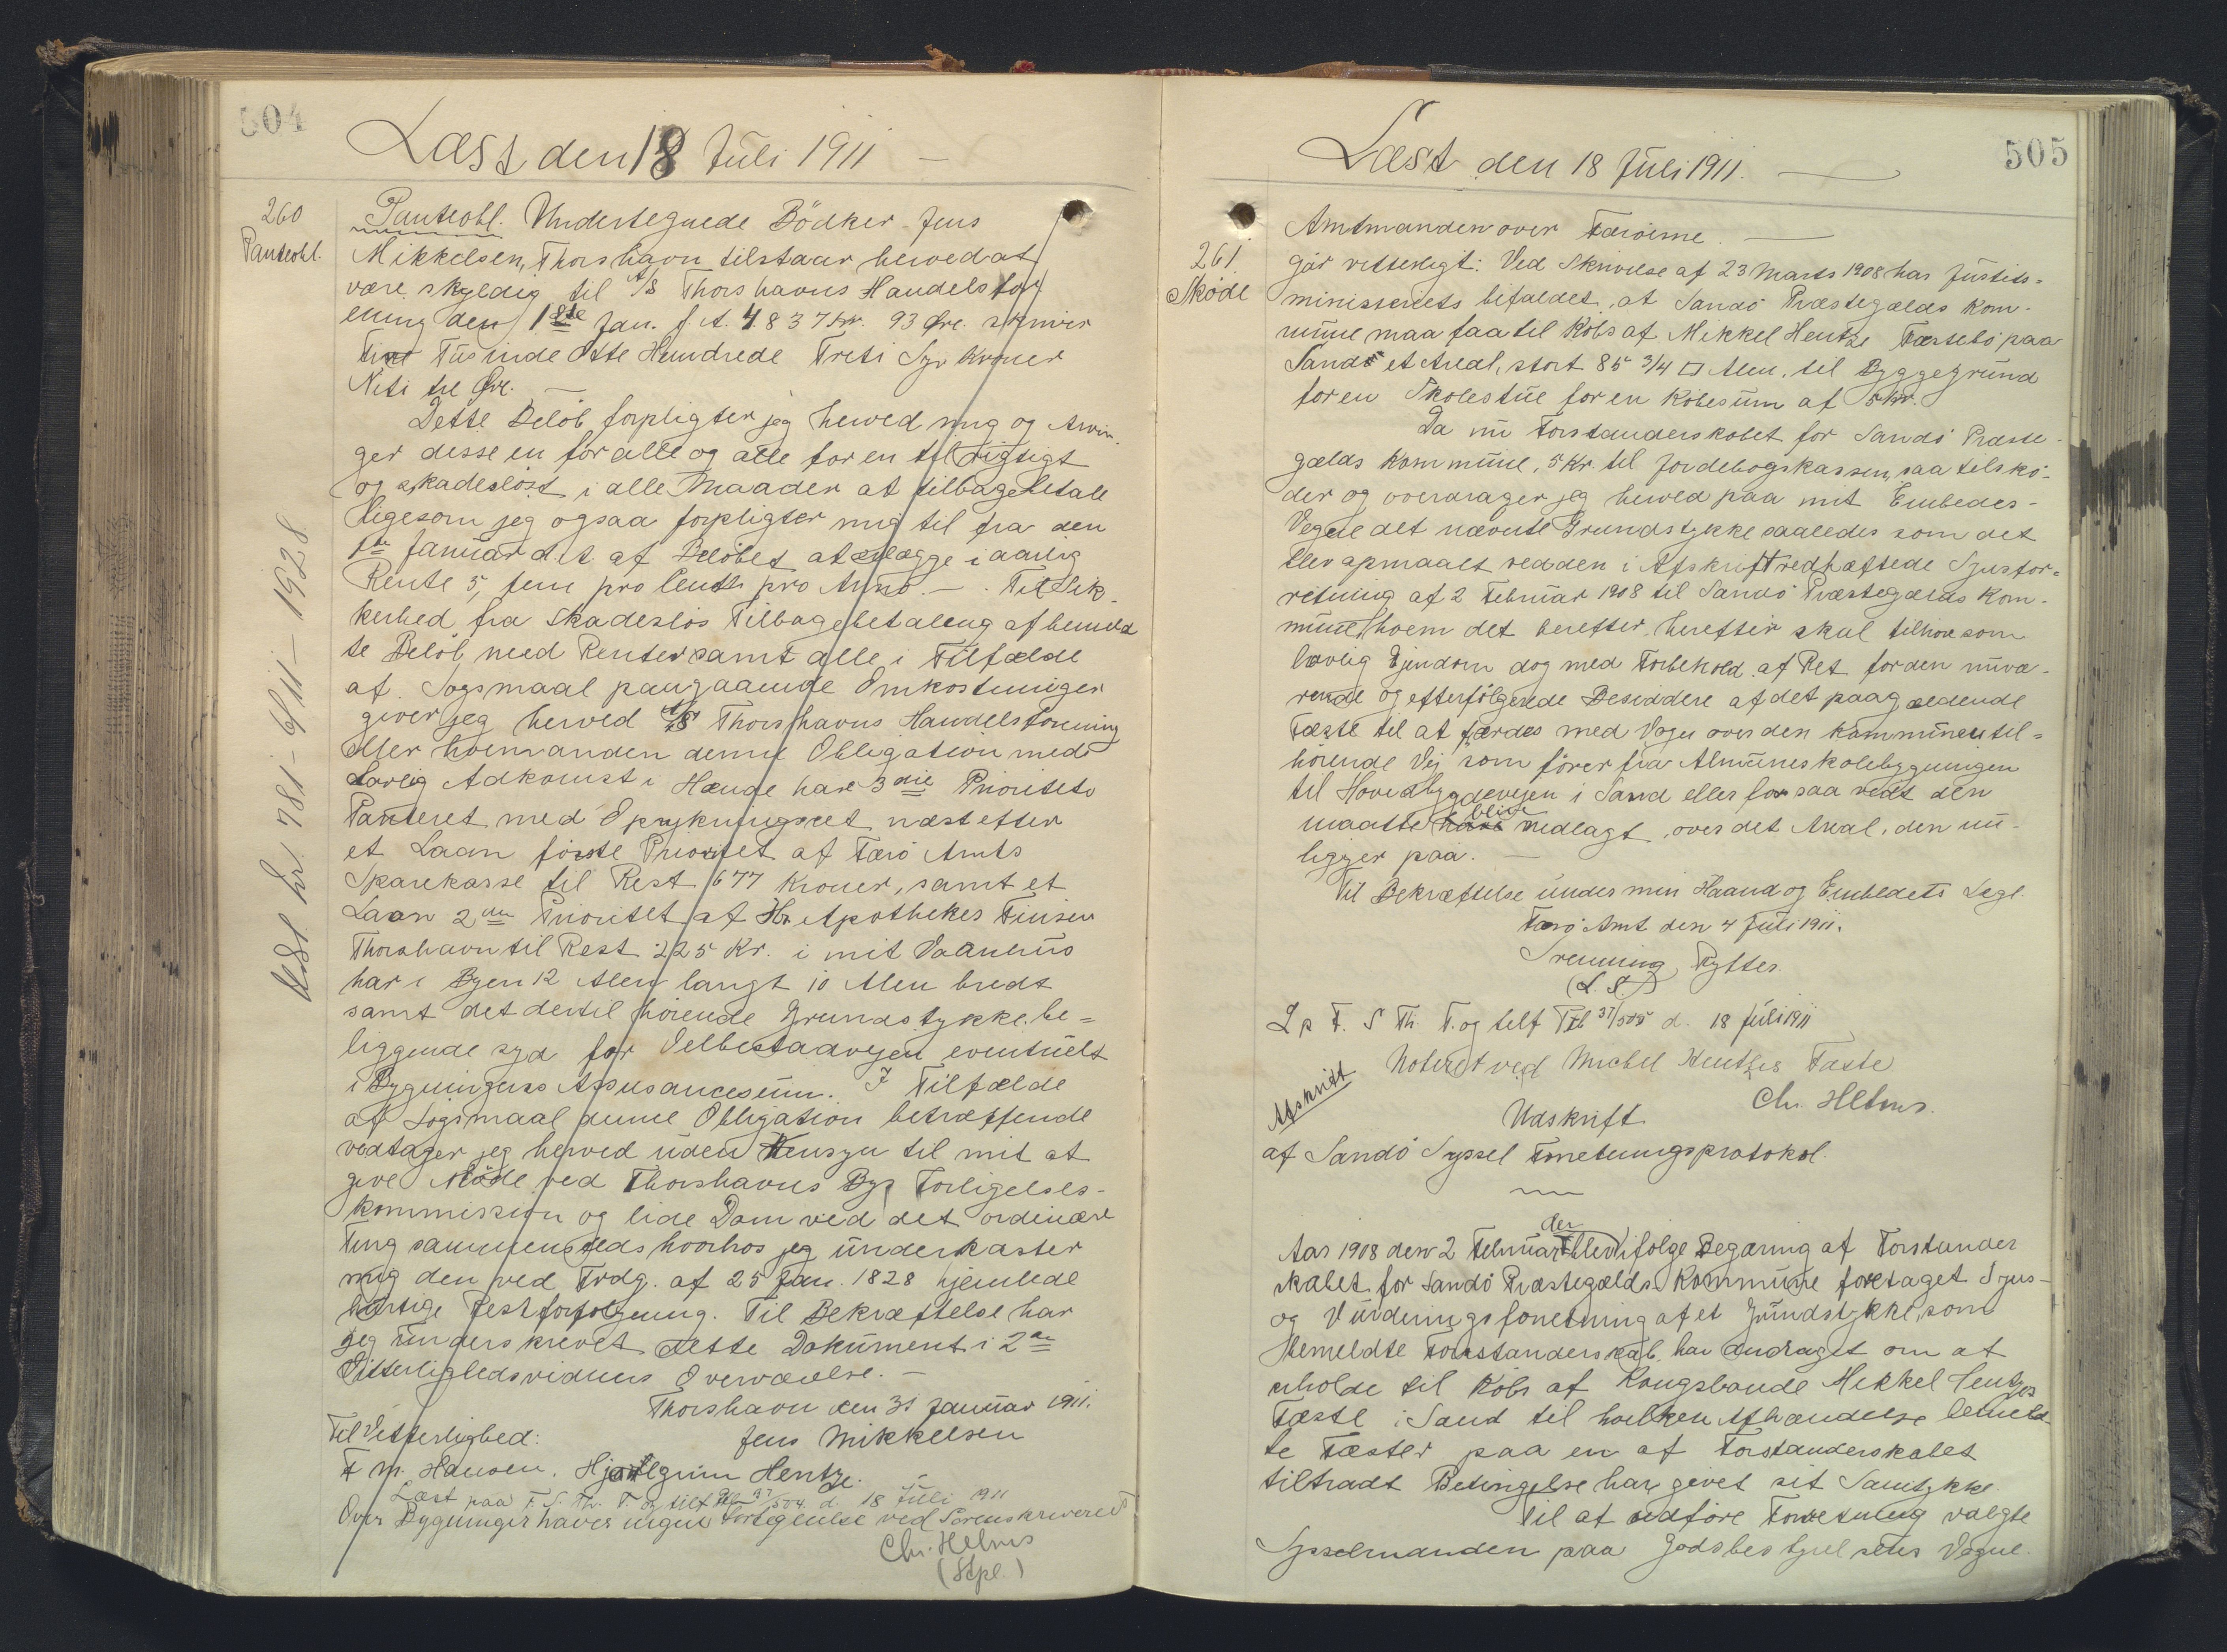 504
Læst den 18 Juli 1911 —
260
Panteobl.
Panteobl. Undertegnede Bödker Jens
Mikkelsen, Thorshavn tilstaar herved at
være skyldig til A/S Thorshavns Handelsfor
ening den 1ste Jan. f. A. 4837 Kr. 93 Øre skriver
Fire Tusinde Otte Hundrede Treti Syv Kroner
Niti tre Øre. —
Dette Belöb forpligter jeg herved mig og Arvin-
ger disse en for alle og alle for en til rigtigt
og skadeslöst i alle Maader at tilbagebetale
ligesom jeg ogsaa forpligter mig til fra den
1ste Januar d. A. af Belöbet at erlægge i aarlig
Rente 5, fem pro Cents pro Anno. — Til Sik-
kerhed fra skadeslös Tilbagebetaling af bemeld
te Belöb med Renter samt alle i Tilfælde
af Sogsmaal paagaaende Omkostninger
giver jeg herved A/S Thorshavns Handelsforening
eller hvem anden denne Obligation med
Lovlig Adkomst i Hænde har 3die Prioritets
Panteret med Oprykningsret næst efter
et Laan förste Prioritet af Færö Amts
Sparekasse til Rest 677 Kroner, samt et
Laan 2den Prioritet af Hr. Apotheker Finsen
Thorshavn til Rest 225 Kr. i mit Vaanhus
her i Byen 12 Alen langt 10 Alen bredt
samt det dertil hörende Grundstykke be=
liggende syd for Velbestaadvejen eventuelt
i Bygningens Assurancesum. I Tilfælde
af Sögsmaal denne Obligation betræffende
vedtager jeg herved uden Hensyn til mit at
give Möde ved Thorshavns Bys Forligelses-
kommission og lide Dom ved det ordinære
Ting sammesteds hvorhos jeg underkaster
mig den ved Frdg. af 25 Jan. 1828 hjemlede
hurtige Restforfölgning. Til Bekræftelse har
jeg underskrevet dette Dokument i 2de
Vitterlighedsvidners Overværelse. —
Thorshavn den 31 Januar 1911.
Til Vitterlighed: Jens Mikkelsen
F M. Hansen. Hjartlgrim Hentze.
Læst paa F. S. Th. T. og tilf Ptb 37/504 d. 18 Juli 1911
Over Bygninger haves ingen Fortegnelse ved Sorenskriveriet
Chr. Helms
(Stpl.)
Udsl hr. 781 - 6/11 - 1928
505
Læst den 18 Juli 1911. —
261.
Sködе
Amtmanden over Færöerne. —
gör vitterligt: Ved Skrivelse af 23 Marts 1908 har Justits=
ministeriets bifaldet, at Sandö Præstegælds Kom-
mune maa faa til Köbs af Mikkel Hentze Fæstebo paa
Sand et Areal, stort 85 3/4 □ Alen, til Byggegrund
for en Skolestue for en Köbesum af 5 Kr.
Da nu Forstanderskabet for Sandö Præste-
gælds Kommune, 5 Kr. til Jordebogskassen, saa tilskö-
der og overdrager jeg herved paa mit Embedes-
Vegne det nævnte Grundstykke saaledes som det
blev opmaalt ved den i Afskrift vedhæftede Synsfor=
retning af 2 Februar 1908 til Sandö Præstegælds Kom-
mune, hvem det herefter, herefter skal tilhöre som
lovlig Ejendom dog med Forbehold af Ret for den nuvæ-
rende og efterfölgende Besiddere af det paagældende
Fæste til at færdes med Vogn over den Kommunen til=
hörende Vej som förer fra Almueskolebygningen
til Hovedbygdevejen i Sand eller for saa vidt den
maatte blive nedlagt, over det Areal, den nu-
ligger paa. —
Til Bekræftelse under min Haand og Embedets Segl.
Færö Amt den 4 Juli 1911.
Svenning Rytter.
(L. S.)
L p F. S Th. T. og tilf Ptb 37/505 d. 18 Juli 1911
Noteret ved Michel Hentzes Fæste
Chr. Helms.
Afskrift
Udskrift
af Sandö Syssel Forretningsprotokol.
Aar 1908 den 2 Februar blev der ifölge Begæring af Forstander
skabet for Sandö Præstegælds Kommune foretaget Syns-
og Vurderingsforretning af et Grundstykke, som
bemeldte Forstanderskab har andraget om at
erholde til Köbs af Kongsbonde Mikkel Hentzes
Fæste i Sand til hvilken Afhændelse bemeld-
te Fæster paa en af Forstanderskabet
tiltraadt Betingelse har givet sit Samtykke.
Til at udföre Forretning valgte
Sysselmanden paa Godsbestyrelsens Vegne